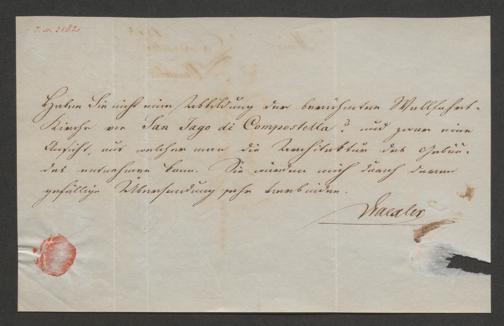 Haben Sie nicht eine Abbildung der berühmten Wallfahrt-
Kirche von San Jago di Compostella? und zwar eine
Ansicht, aus welcher man die Architektur des Gebäu-
des entnehmen kann. Sie würden mich durch deren
gefällige Übersendung sehr verbinden.